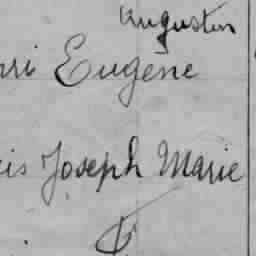 Augustin
Eugène
Joseph Marie